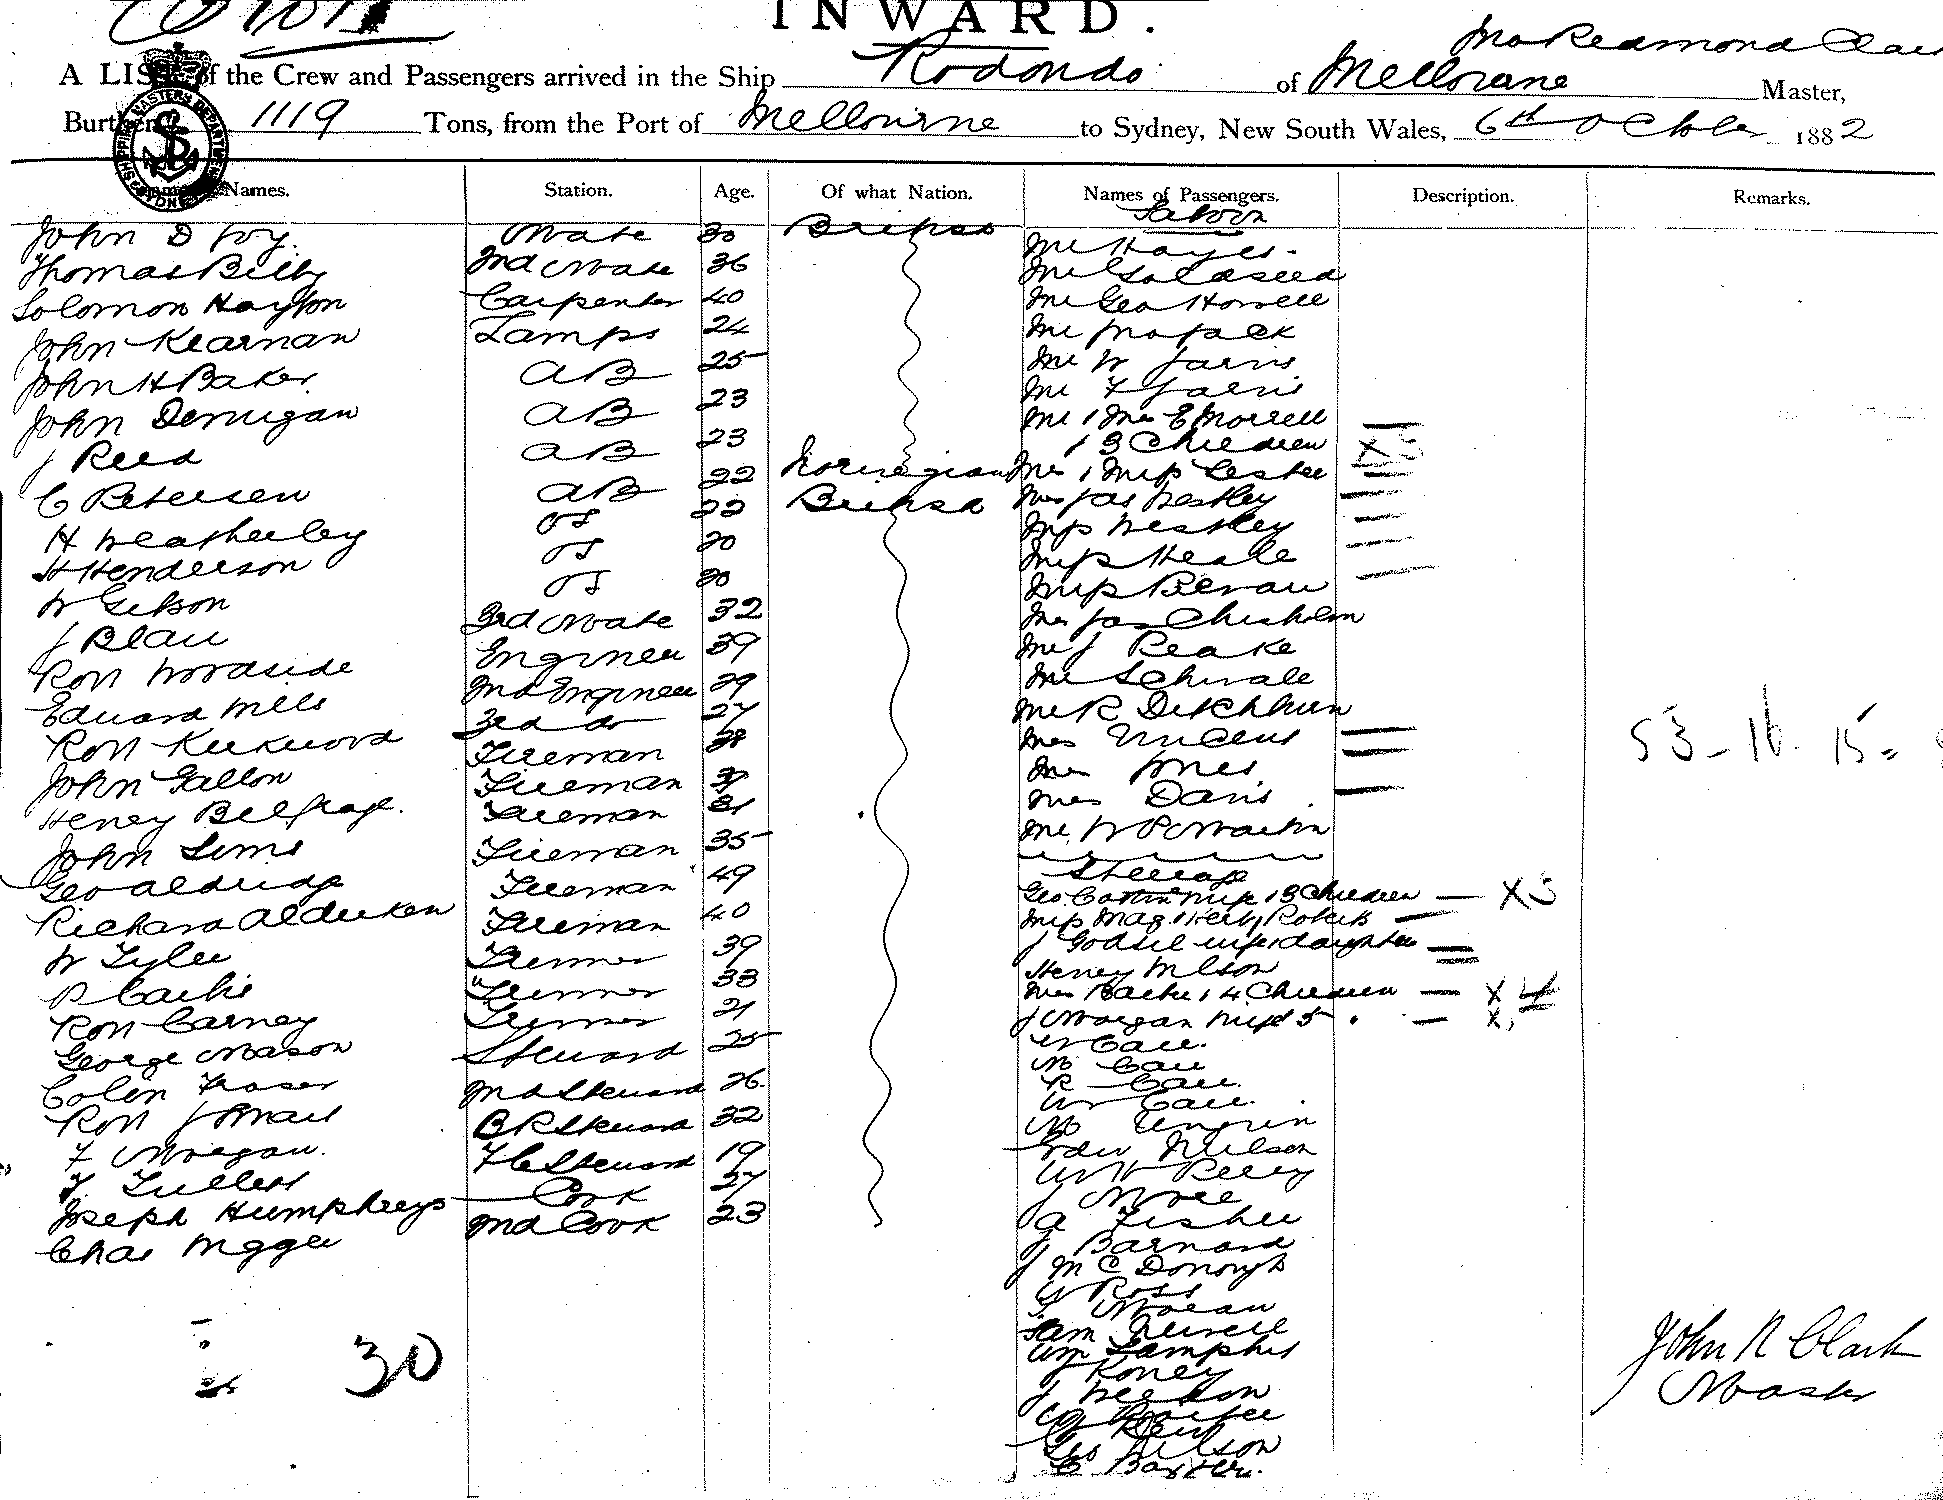 INWARD.
Jno Redmond Clar
A LIST of the Crew and Passengers arrived in the Ship Rodondo of Melbourne Master,
Burthen 1119 Tons, from the Port of Melbourne to Sydney, New South Wales, 6th October 1882
Names. Station. Age. Of what Nation. Names of Passengers. Description. Remarks.
Saloon
John D Foy Mate 30 British Mr Hayes
Thomas Bilby 2nd Mate 36 Mr Goldseed
Solomon Hayton Carpenter 40 Mr Geo Howell
John Kearnan Lamps 24 Mr Jno Jack
John H Baker AB 25 Mr W Jarvis
John Dernigan AB 23 Mr F Jarvis
J Reed AB 23 Mr & Mrs E Morrell
& 3 Children X 3
C Petersen AB 22 Norwegian Mrs & Miss Lester
H Weatherley OS 22 British Mrs Jas Westley
H Henderson OS 20 Miss Westley
W Gibson OS 20 Miss Heale
J Blair 3rd Mate 32 Miss Bevan
Robt Woodside Engineer 39 Mrs Jas Chisholm
Edward Mills 2nd Engineer 29 Mr J Peake
Robt Kirkwood 3rd do 27 Mr Schwale
John Gallon Fireman 38 Mr R Ditchburn
Henry Belfrage Fireman 39 Mrs Vincent
John Sims Fireman 31 Mrs Jones
Geo Aldridge Fireman 35 Mrs Davis
Richard Alderken Fireman 49 Mr W P Martin
W Tyler Fireman 40
Steerage
P Carlie Trimmer 39 Geo Costin Wife & 3 Children X 3
Robt Carney Trimmer 33 Miss Mag & Kery Roberts
George Mason Trimmer 21 J Godsil wife & daughter
Colin Fraser Steward 25 Henry Wilson
Mrs Baker & 4 Children X 4
Robt J Small 2nd Steward 26 J Morgan Wife & 5 X
F Morgan BR Steward 32 W Carr
M Carr
F. Tullett FC Steward 19 R Carr
Joseph Humphreys Cook 27 Wm Carr
Chas Wigger 2nd Cook 23 M
Edw Neilson
W H Perry
J More
A Fisher
J Barnard
J McDonogh
W Ross
T. Moran
Sam Newell
Wm Lamphis
J Roney
J Weedon
Geo Wilson
C Baxter
53 - 16. 15 =
30
John R Clark
Master